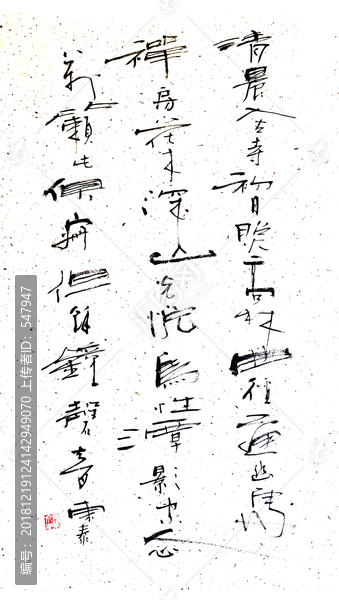 清晨入古寺初日照高林曲径通幽處
禪房花木深山光悦鳥性潭影空人心
萬籟此俱寂但餘鐘磬音
编号：20181219124142949070 上传者ID：547947